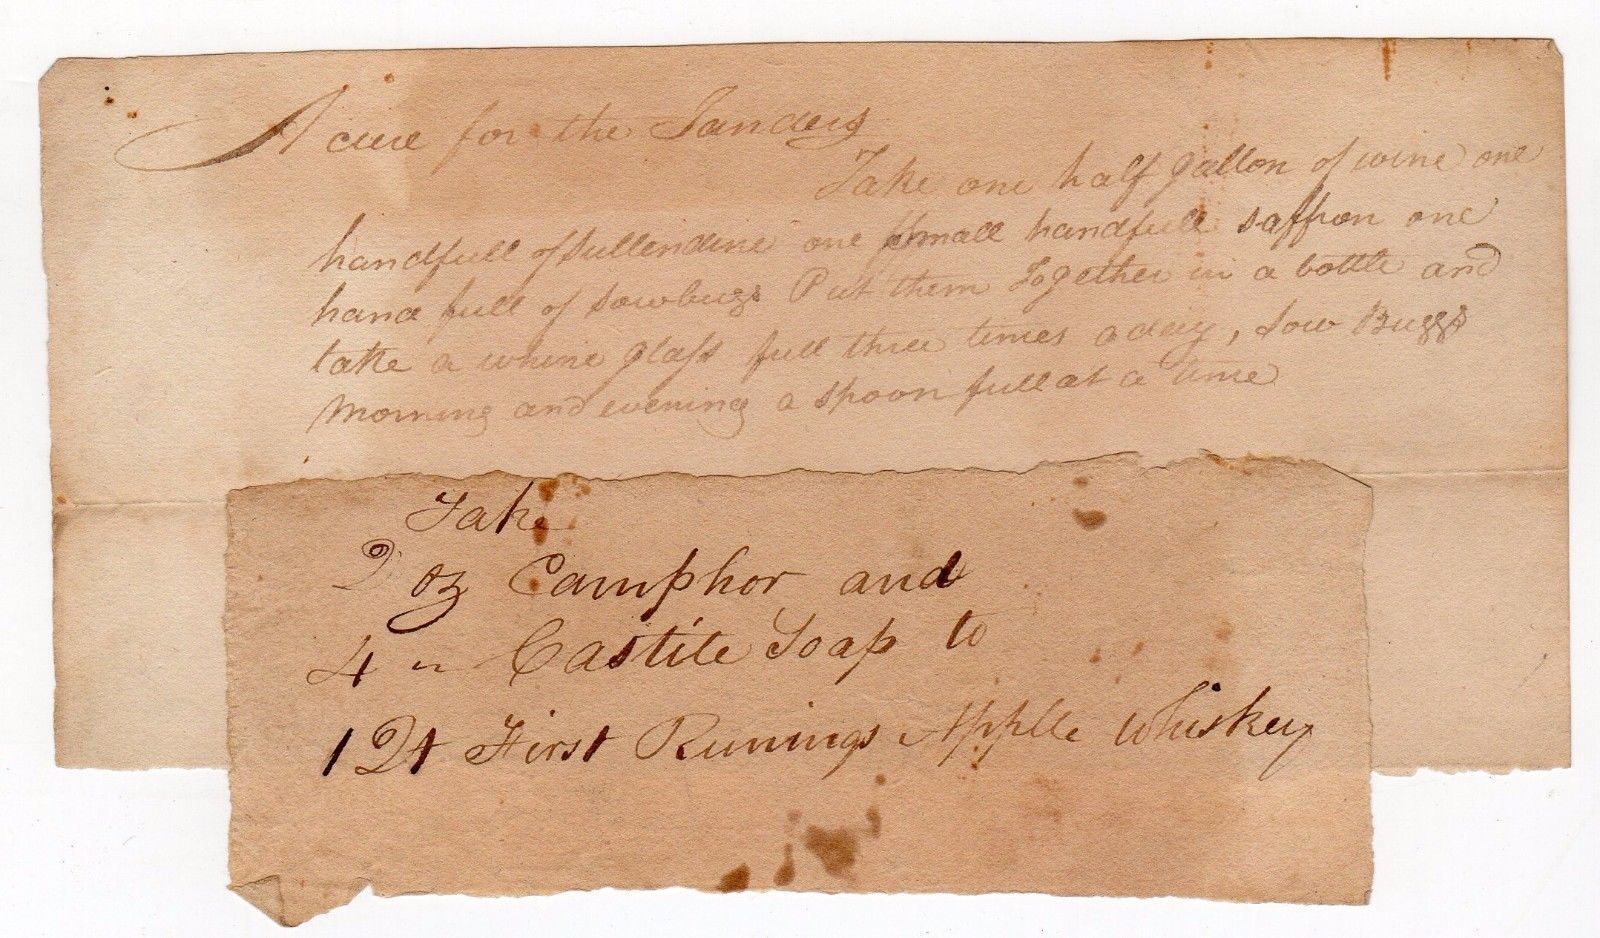 A cure for the Janders
Take one half gallon of wine one
handfull of Sullendine one small handfull saffron one
hand full of sowbugs Put them Together in a bottle and
take a whine glass full three times a day, Sow Buggs
Morning and evening a spoon full at a time
Take
2 oz Camphor and
4 " Castile Soap to
1 Qt First Runings AppLle Whiskey